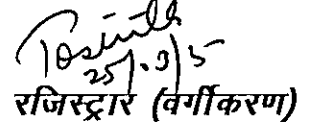 25/.3/5
रजिस्ट्रार (वर्गीकरण)